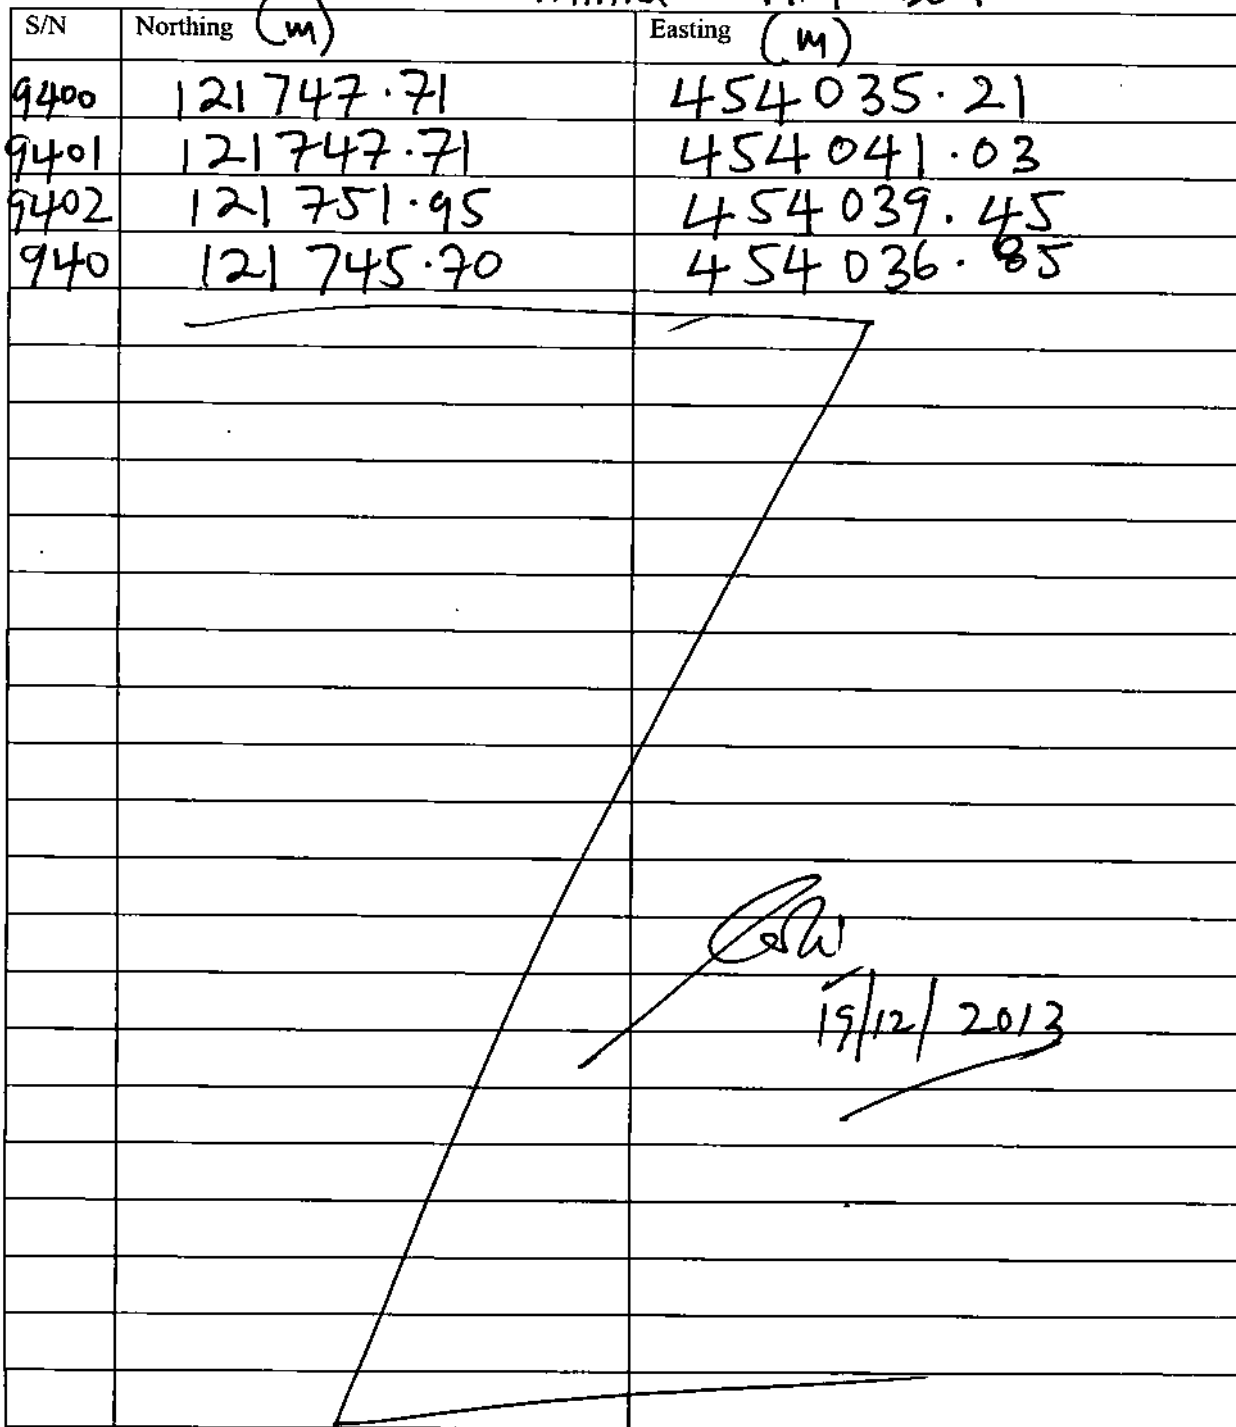 S/N Northing (m) Easting (m)
9400 121747.71 454035.21
9401 121747.71 454041.03
9402 121751.95 454039.45
940 121745.70 454036.85
19/12/2013